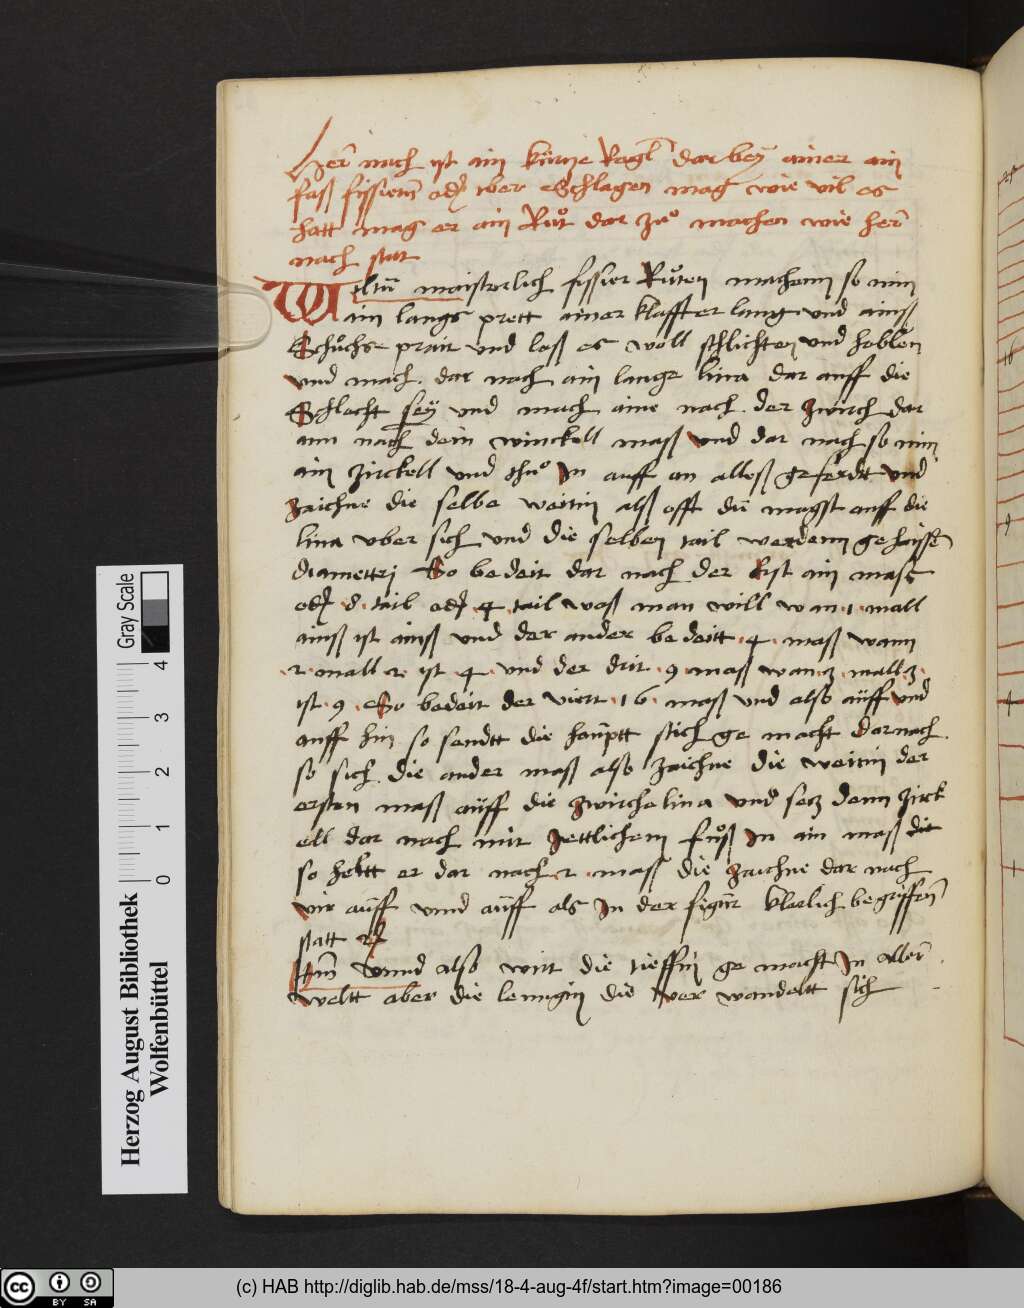 Her nach ist ain kurtze Regl dar bey ainer ain
faß fissieren oder über Schlagen mag wie vil es
hatt mag er ain Růt dar zů machen wie her
nach stat
Wiltu maisterlich fissier Růten machenn so nim
ain langs prett ainer klaffter lang und ainß
Schůchs prait und laß es woll schlichten und hoblen
und mach dar nach ain lange lina dar auff die
Schlecht sey und mach aine nach der zwirch dar
ann nach dem winckell maß und dar nach so nim
ain zirckell und thuͦ In auff an alleß geferdt und
zaichne die selbe weitin alß offt du magst auff die
lina uber sich und die selben tail werdenn gehaissen
diamettri So bedeit dar nach der Erst ain mass
oder 8 tail oder 4 tail waß man will wan 1 mall
ainß ist ainß und der ander bedeitt 4 maß wann
2 mall 2 ist 4 und der drit 9 maß wan 3 mall 3
ist 9 So bedeit der viert 16 maß und also auff und
auff hin so sendtt die hauptt stich ge macht darnach
so sich die ander maß also zaichne die weitin der
ersten maß auff die zwirche lina und secz denn zirck
ell dar nach mit Jettlichem fuͦß In ain maß die
so heltt er dar nach 2 mass die zaichne dar nach
vir auff unnd auff als In der figur klerlich begriffen
statt
Item unnd also wirt die tieffin ge macht In aller
weltt aber die lenngin die ver wandeltt sich
Gray Scale
4
3
2
1
0
Herzog August Bibliothek
Wolfenbüttel
cc BY SA
(c) HAB http://diglib.hab.de/mss/18-4-aug-4f/start.htm?image=00186